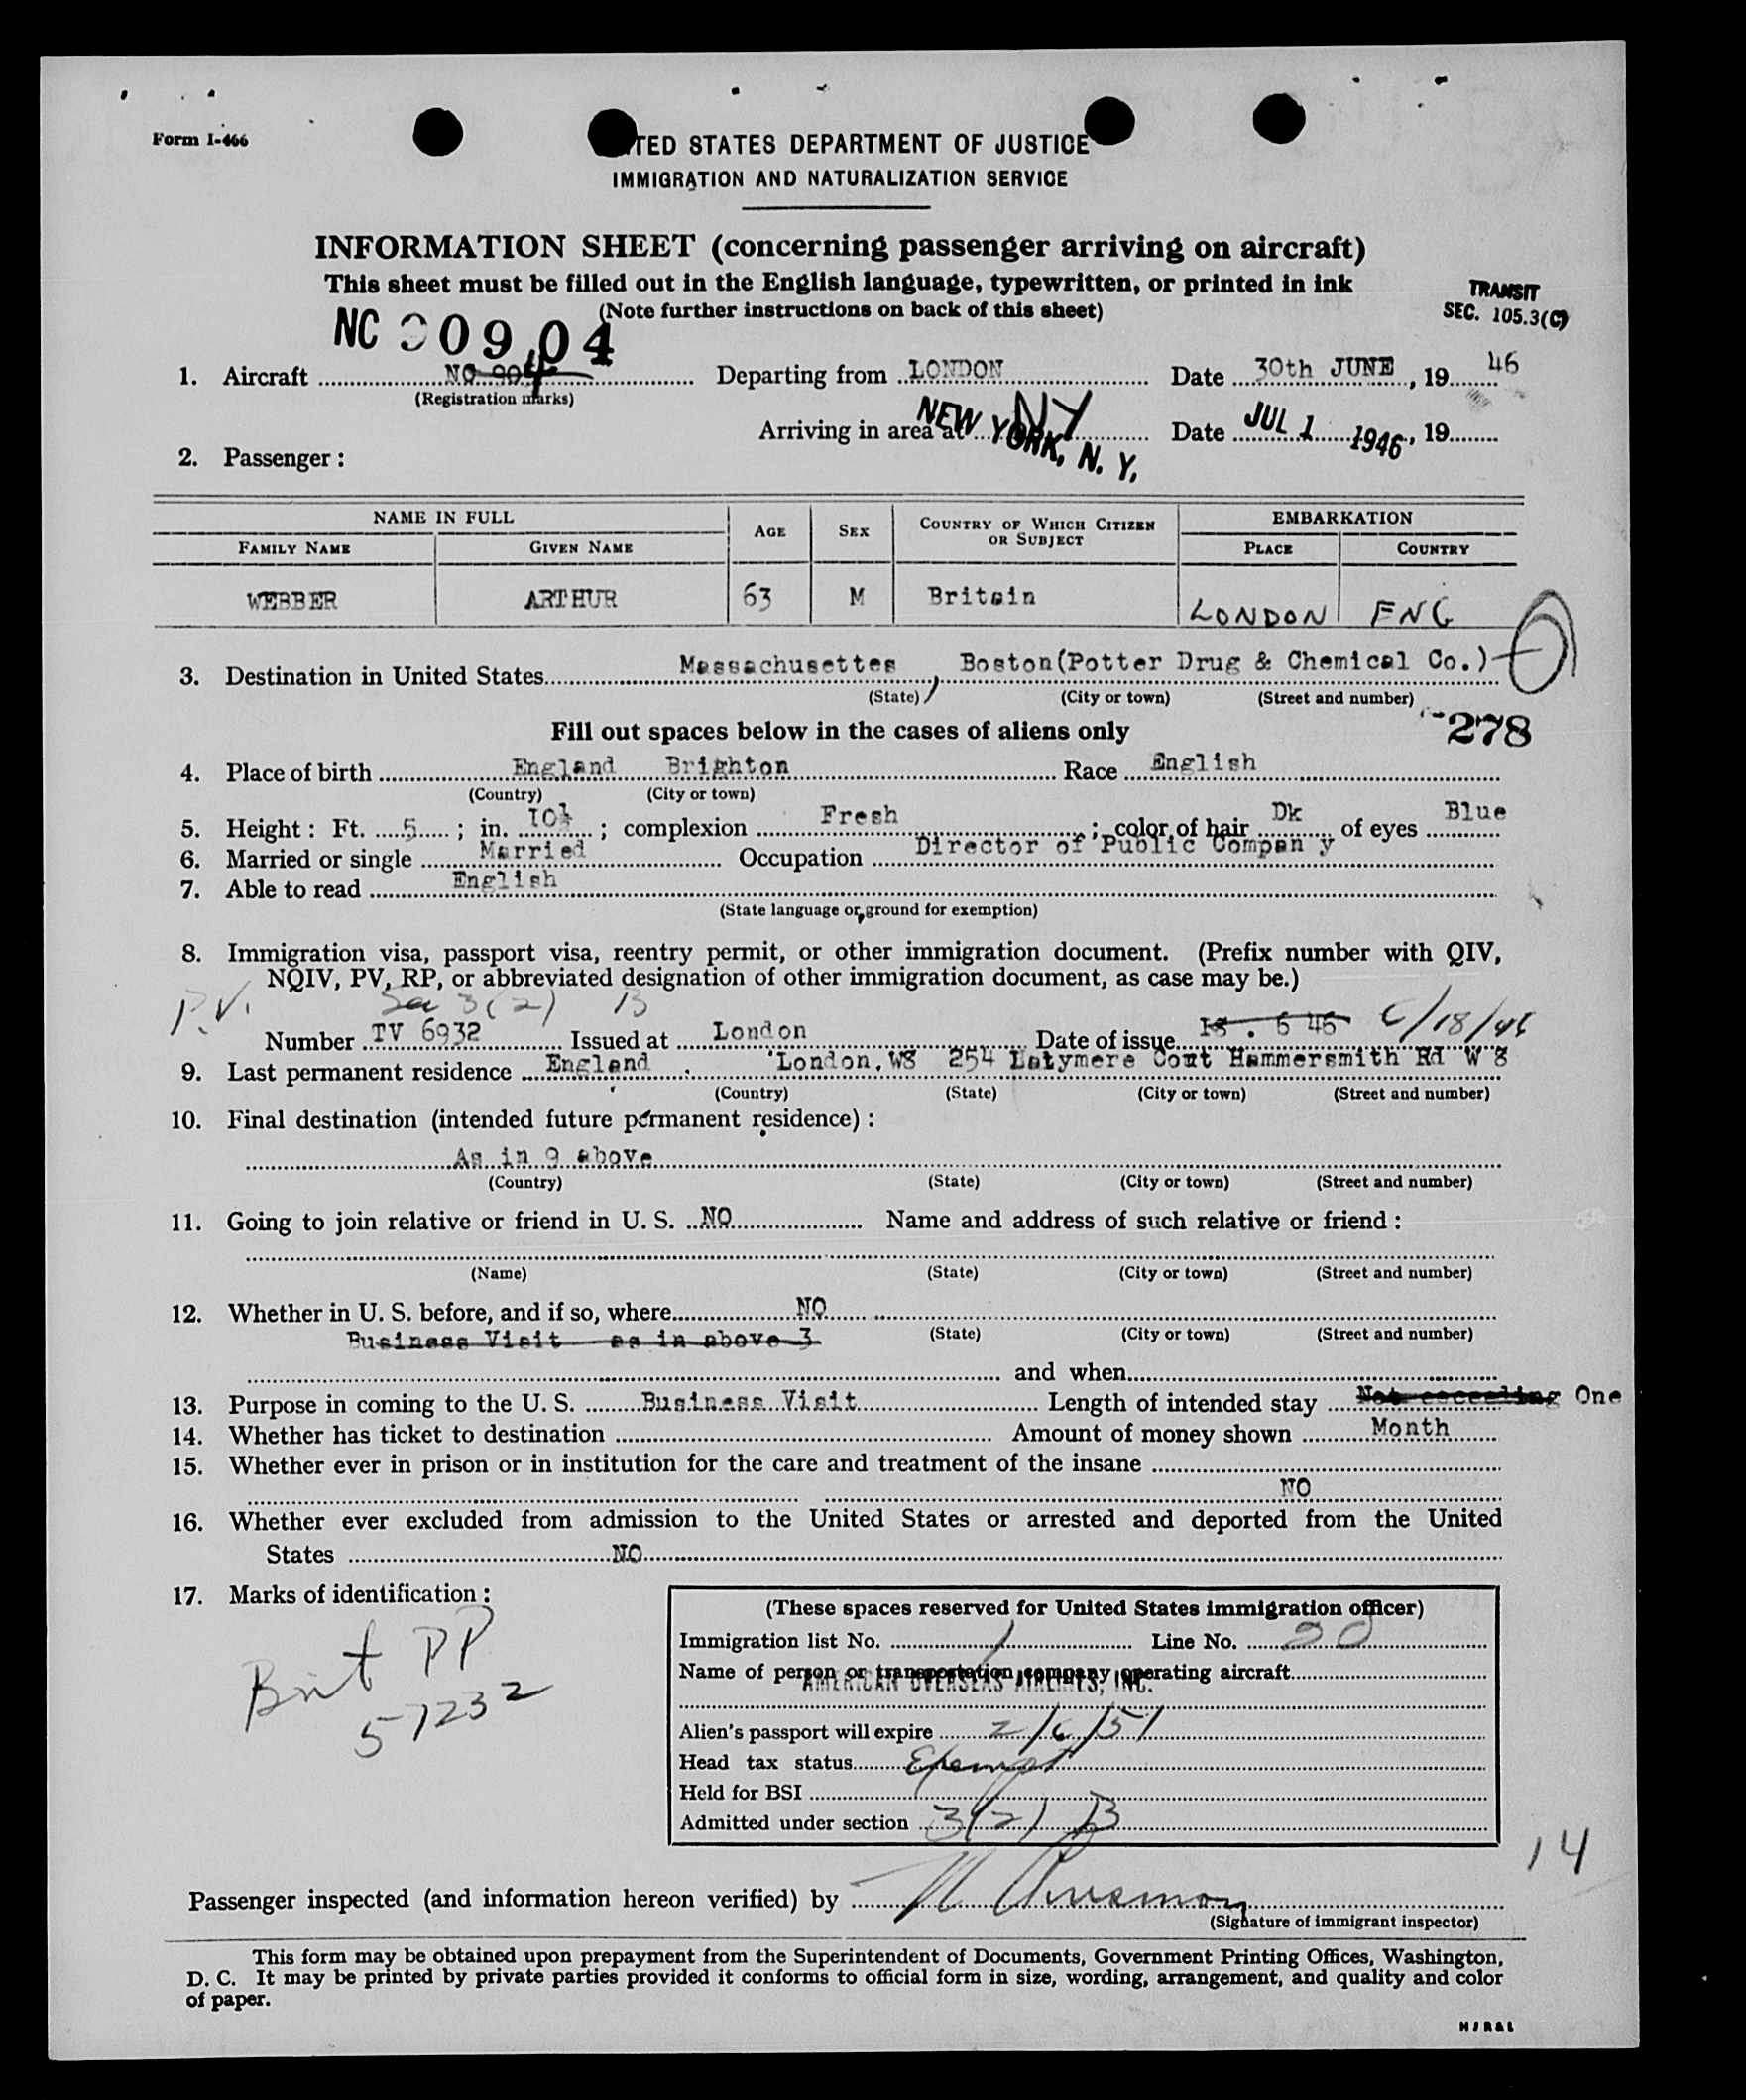 Form I-466
TED STATES DEPARTMENT OF JUSTICE
IMMIGRATION AND NATURALIZATION SERVICE
INFORMATION SHEET (concerning passenger arriving on aircraft)
This sheet must be filled out in the English language, typewritten, or printed in ink
(Note further instructions on back of this sheet)
TRANSIT
SEC. 105.3(C)
NC 90904
1. Aircraft NC 904 Departing from LONDON Date 30th JUNE, 19 46
(Registration marks)
Arriving in area at NY NEW YORK, N. Y. Date JUL 1 1946, 19
2. Passenger:
NAME IN FULL AGE SEX COUNTRY OF WHICH CITIZEN OR SUBJECT EMBARKATION
FAMILY NAME GIVEN NAME PLACE COUNTRY
WEBBER ARTHUR 63 M Britain LONDON ENG
3. Destination in United States Massachusettes, Boston(Potter Drug & Chemical Co.)
(State) (City or town) (Street and number)
Fill out spaces below in the cases of aliens only
278
4. Place of birth England Brighton Race English
(Country) (City or town)
5. Height: Ft. 5; in. 10½; complexion Fresh; color of hair Dk of eyes Blue
6. Married or single Married Occupation Director of Public Compan y
7. Able to read English
(State language or ground for exemption)
8. Immigration visa, passport visa, reentry permit, or other immigration document. (Prefix number with QIV,
NQIV, PV, RP, or abbreviated designation of other immigration document, as case may be.)
P.V. Sec 3(2) B
Number TV 6932 Issued at London Date of issue 18 . 6 46 6/18/46
9. Last permanent residence England London, W8 254 Latymere Cout Hammersmith Rd W 8
(Country) (State) (City or town) (Street and number)
10. Final destination (intended future permanent residence):
As in 9 above
(Country) (State) (City or town) (Street and number)
11. Going to join relative or friend in U. S. NO Name and address of such relative or friend:
(Name) (State) (City or town) (Street and number)
12. Whether in U. S. before, and if so, where NO
Business Visit as in above 3 (State) (City or town) (Street and number)
and when
13. Purpose in coming to the U. S. Business Visit Length of intended stay Not exceeding One
14. Whether has ticket to destination Amount of money shown Month
15. Whether ever in prison or in institution for the care and treatment of the insane
NO
16. Whether ever excluded from admission to the United States or arrested and deported from the United
States NO
17. Marks of identification:
Brit PP
57232
(These spaces reserved for United States immigration officer)
Immigration list No. 1 Line No. 20
Name of person or transportation company operating aircraft
AMERICAN OVERSEAS AIRLINES, INC.
Alien's passport will expire 2/6/51
Head tax status Exempt
Held for BSI
Admitted under section 3(2) B
14
Passenger inspected (and information hereon verified) by
(Signature of immigrant inspector)
This form may be obtained upon prepayment from the Superintendent of Documents, Government Printing Offices, Washington,
D. C. It may be printed by private parties provided it conforms to official form in size, wording, arrangement, and quality and color
of paper.